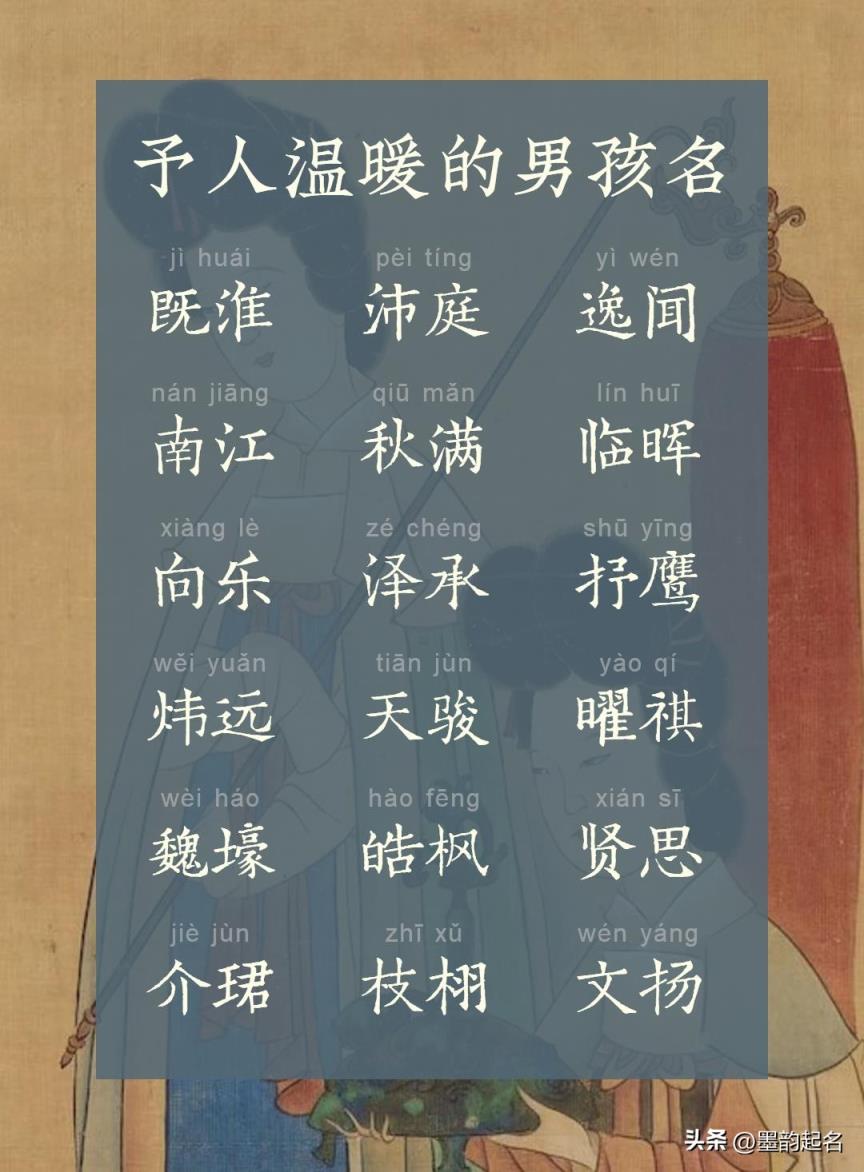 予人温暖的男孩名
jì huái pèi tíng yì wén
既淮 沛庭 逸闻
nán jiāng qiū mǎn lín huī
南江 秋满 临晖
xiàng lè zé chéng shū yīng
向乐 泽承 抒鹰
wěi yuǎn tiān jùn yào qí
炜远 天骏 曜祺
wèi háo hào fēng xián sī
魏壕 皓枫 贤思
jiè jùn zhī xǔ wén yáng
介珺 枝栩 文扬
头条 @墨韵起名